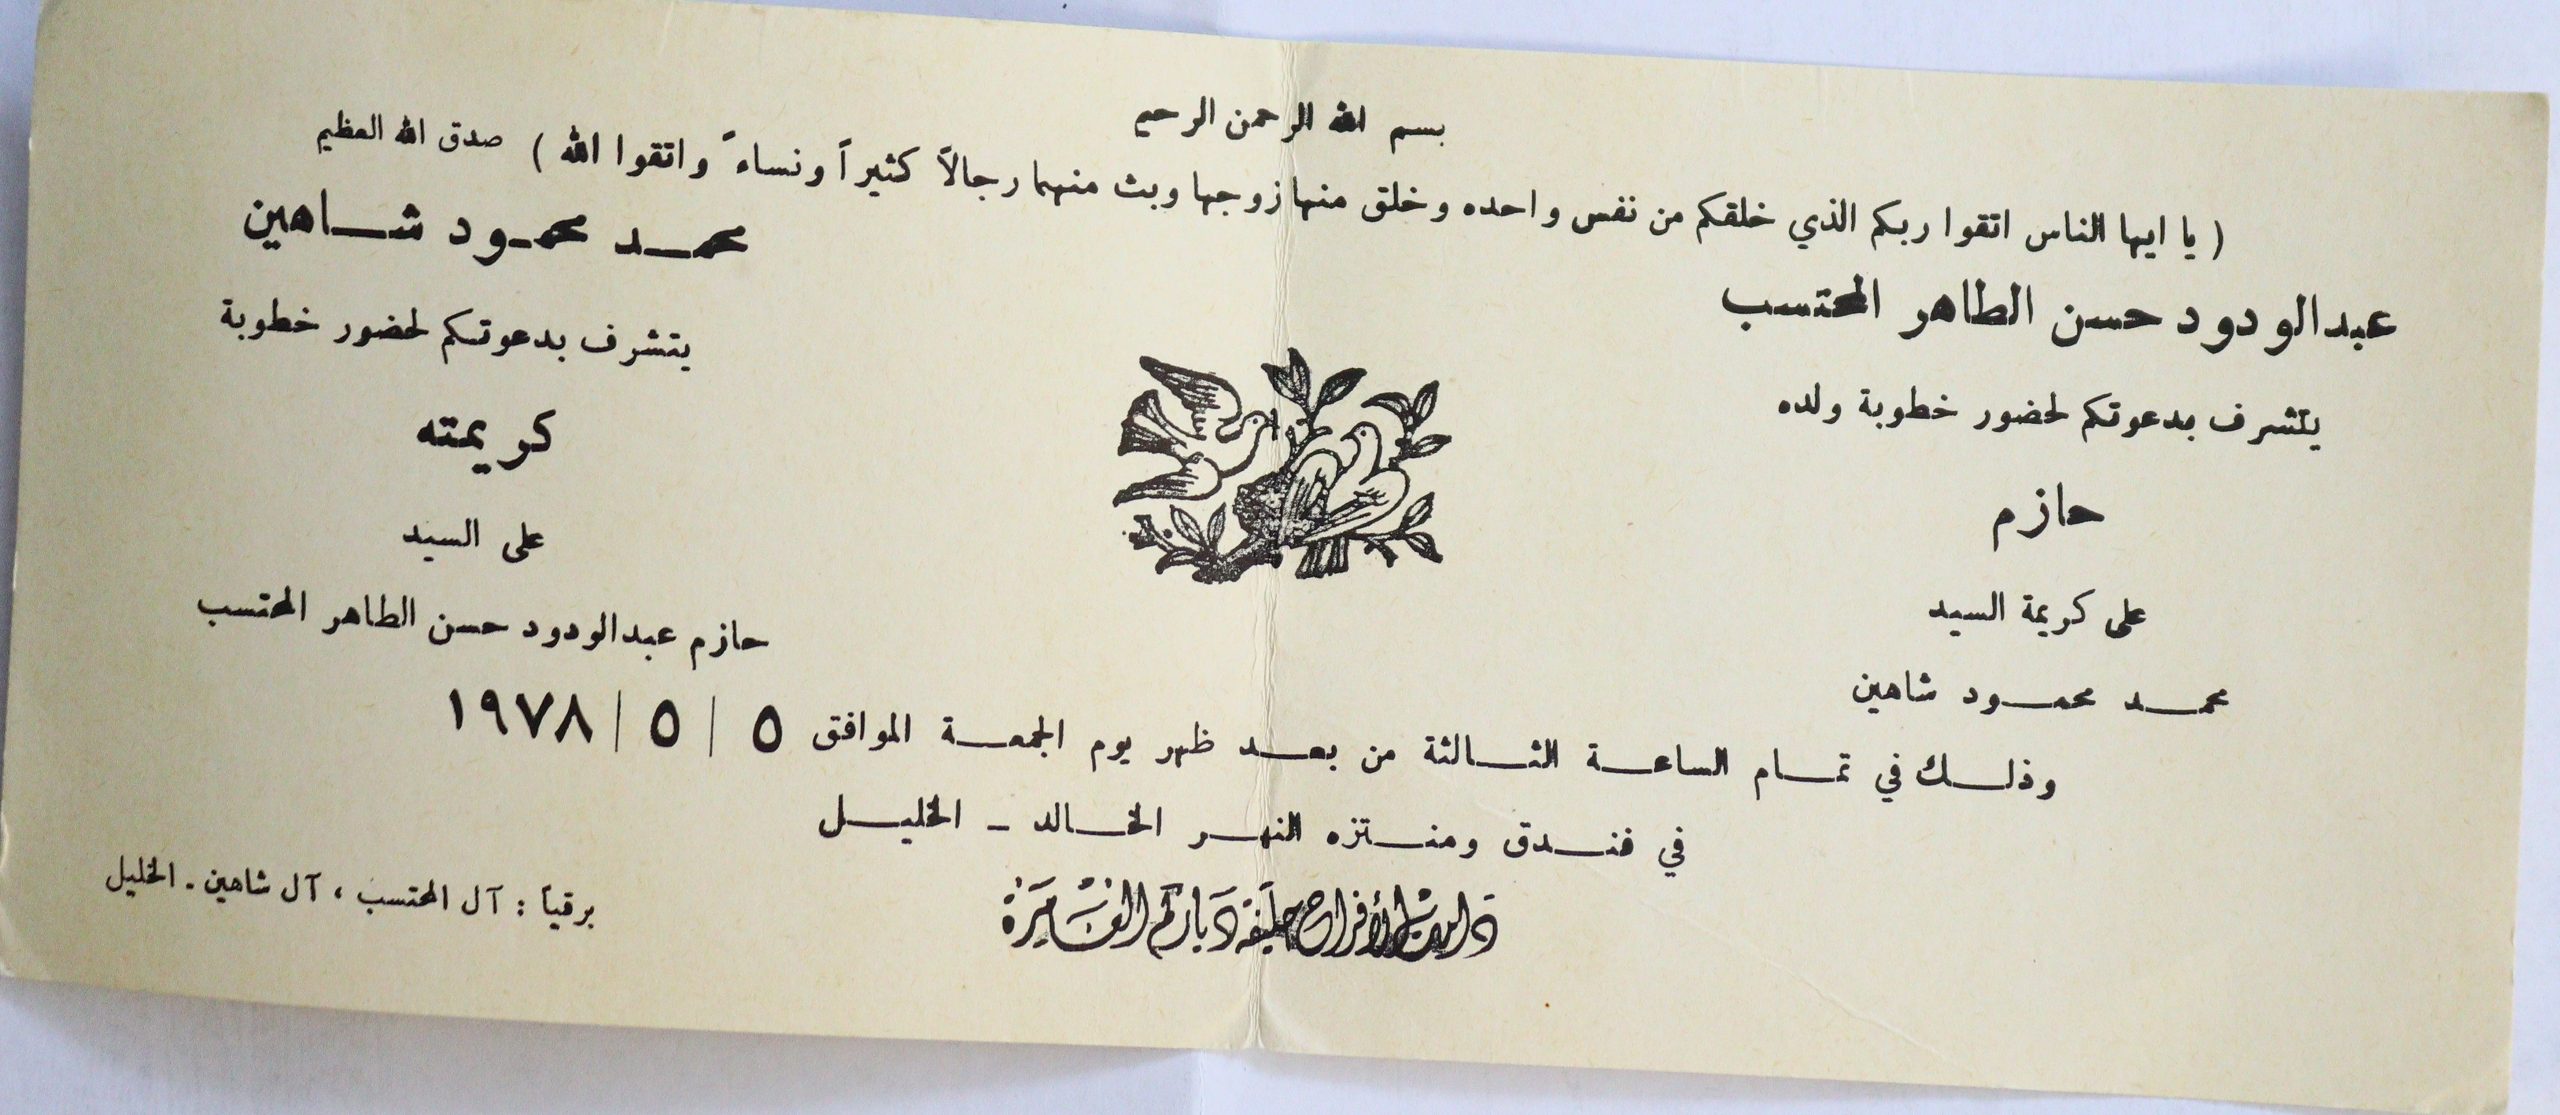 بسم الله الرحمن الرحيم
( يا ايها الناس اتقوا ربكم الذي خلقكم من نفس واحده وخلق منها زوجها وبث منهما رجالاً كثيراً ونساءً واتقوا الله ) صدق الله العظيم
عبدالودود حسن الطاهر المحتسب
يتشرف بدعوتكم لحضور خطوبة ولده
حازم
على كريمة السيد
محمد محمود شاهين
محمد محمود شاهين
يتشرف بدعوتكم لحضور خطوبة
كريمته
على السيد
حازم عبدالودود حسن الطاهر المحتسب
وذلك في تمام الساعة الثالثة من بعد ظهر يوم الجمعة الموافق ٥ / ٥ / ١٩٧٨
في فندق ومنتزه النهر الخالد - الخليل
دامت الأفراح حليفة دياركم العامرة
برقياً : آل المحتسب ، آل شاهين - الخليل